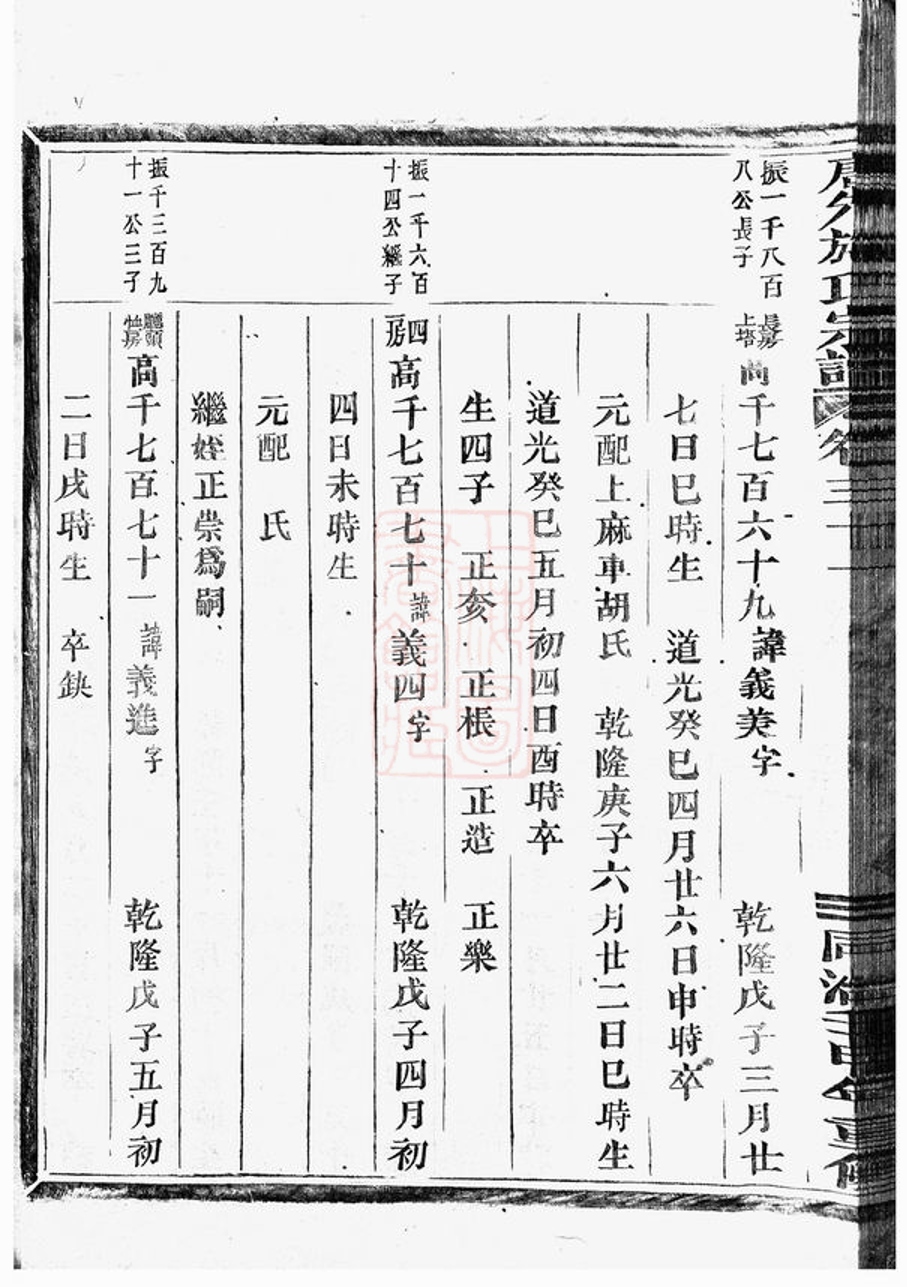 施氏宗譜 卷三十一
同治壬申年重修
振一千八百
八公長子
長房
上塔
高千七百六十九諱義美字 乾隆戊子三月廿
七日巳時生 道光癸巳四月廿六日申時卒
元配上麻車胡氏 乾隆庚子六月廿二日巳時生
道光癸巳五月初四日酉時卒
生四子 正亥 正棖 正造 正樂
振一千六百
十四公繼子
四房
高千七百七十諱義四字 乾隆戊子四月初
四日未時生
元配 氏
繼姪正崇爲嗣
振千三百九
十一公三子
高千七百七十一諱義進字 乾隆戊子五月初
二日戌時生 卒缺